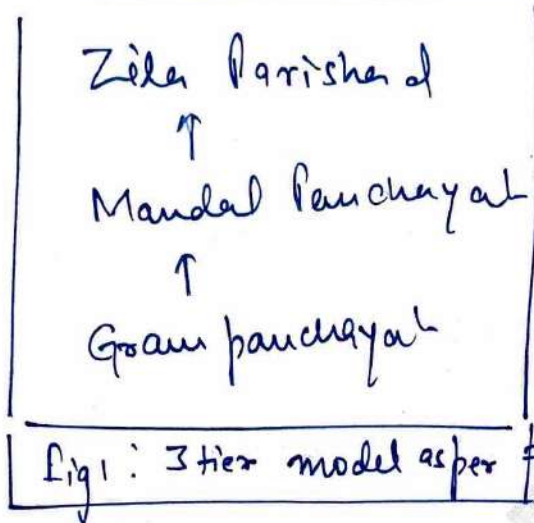 Zila Parishad
↑
Mandal Panchayat
↑
Gram panchayat
fig1: 3 tier model as per